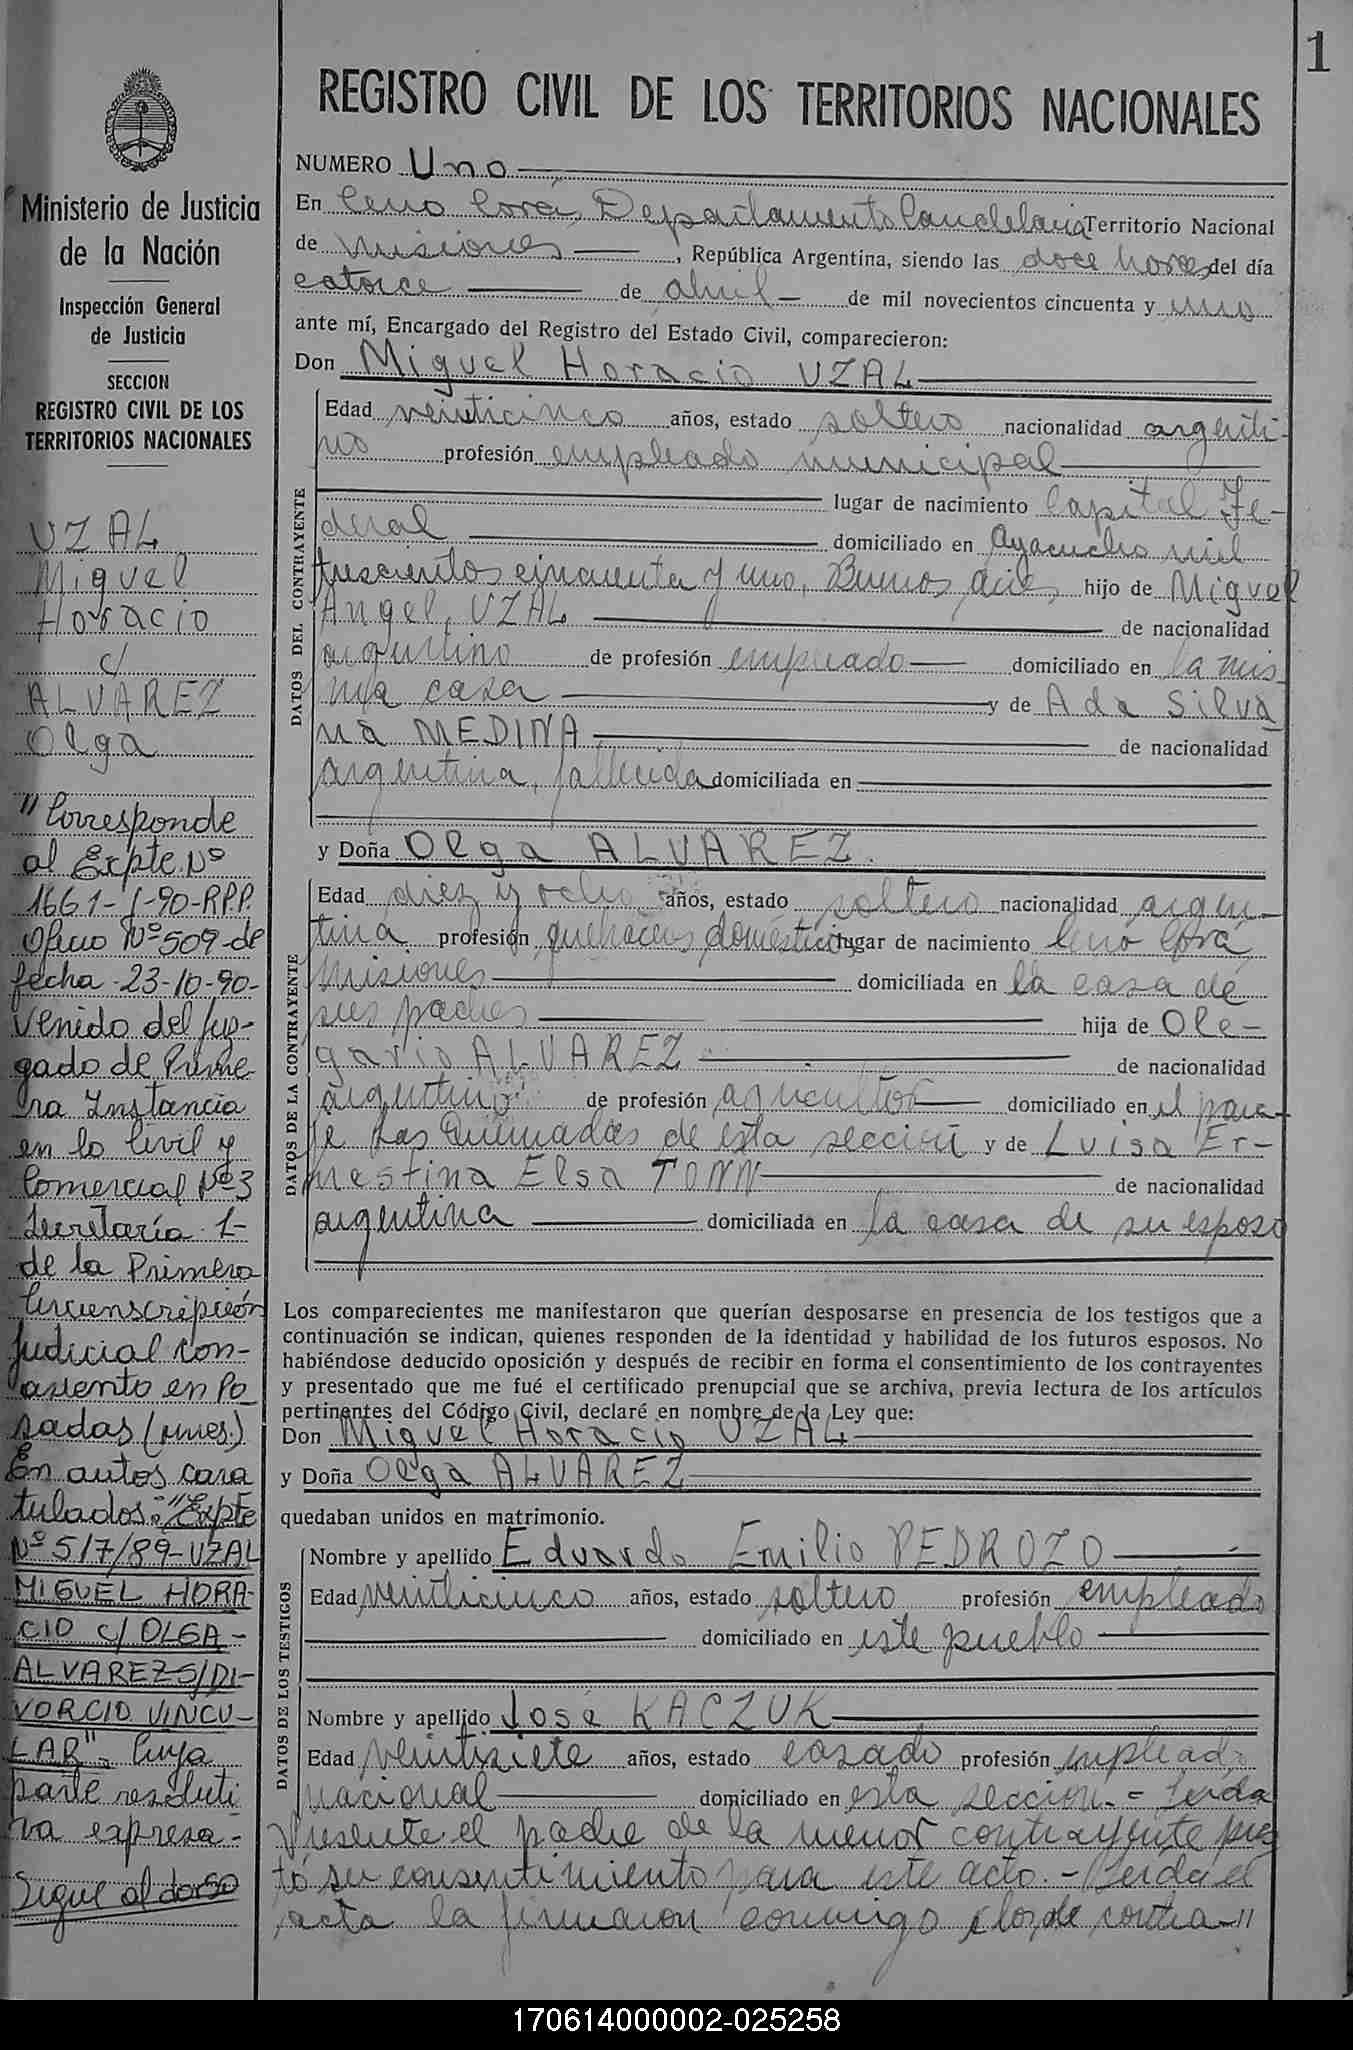 1
REGISTRO CIVIL DE LOS TERRITORIOS NACIONALES
Ministerio de Justicia
de la Nación
Inspección General
de Justicia
SECCION
REGISTRO CIVIL DE LOS
TERRITORIOS NACIONALES
UZAL
Miguel
Horacio
c/
ALVAREZ
Olga
"Corresponde
al Expte. Nº
1661-J-90-R.P.P.
Oficio Nº 509-de
fecha-23-10-90-
Venido del Juz-
gado de Prime-
ra Instancia
en lo Civil y
Comercial Nº3
Secretaría 1-
de la Primera
Circunscripción
Judicial con-
asiento en Po
sadas (mnes.)
En autos cara
tulados: "Expte
Nº 517/89-UZAL
MIGUEL HORA-
CIO C/ OLGA-
ALVAREZ S/DI-
VORCIO VINCU-
LAR". Cuya
parte resoluti
va expresa-
Sigue al dorso
NUMERO Uno
En Cerro Corá, Departamento Candelaria Territorio Nacional
de Misiones, República Argentina, siendo las doce horas del día
catorce de abril de mil novecientos cincuenta y uno
ante mí, Encargado del Registro del Estado Civil, comparecieron:
Don Miguel Horacio UZAL
DATOS DEL CONTRAYENTE
Edad veinticinco años, estado soltero nacionalidad argenti-
no profesión empleado municipal
lugar de nacimiento Capital Fe-
deral domiciliado en Ayacucho mil
trescientos cincuenta y uno, Buenos Aires, hijo de Miguel
Angel UZAL de nacionalidad
argentino de profesión empleado domiciliado en la mis
ma casa y de Ada Silva
na MEDINA de nacionalidad
argentina, fallecida domiciliada en
y Doña Olga ALVAREZ.
DATOS DE LA CONTRAYENTE
Edad diez y ocho años, estado soltero nacionalidad argen-
tina profesión quehaceres domésticos lugar de nacimiento Cerro Corá
Misiones domiciliada en la casa de
sus padres hija de Ole-
gario ALVAREZ de nacionalidad
argentino de profesión agricultor domiciliado en el para-
je Las Quemadas de esta sección y de Luisa Er-
nestina Elsa TONN de nacionalidad
argentina domiciliada en la casa de su esposo
Los comparecientes me manifestaron que querían desposarse en presencia de los testigos que a
continuación se indican, quienes responden de la identidad y habilidad de los futuros esposos. No
habiéndose deducido oposición y después de recibir en forma el consentimiento de los contrayentes
y presentado que me fué el certificado prenupcial que se archiva, previa lectura de los artículos
pertinentes del Código Civil, declaré en nombre de la Ley que:
Don Miguel Horacio UZAL
y Doña Olga ALVAREZ
quedaban unidos en matrimonio.
DATOS DE LOS TESTIGOS
Nombre y apellido Eduardo Emilio PEDROZO
Edad veinticinco años, estado soltero profesión empleado
domiciliado en este pueblo
Nombre y apellido José KACZUK
Edad veintisiete años, estado casado profesión empleado
nacional domiciliado en esta sección.- Leída
Presente el padre de la menor contrayente pres
tó su consentimiento para este acto.- Leída el
acta la firmaron conmigo, los de contra-"
170614000002-025258